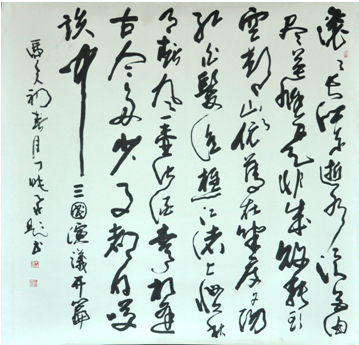 滚々长江东逝水浪花淘
尽英雄是非成败转头
空青山依旧在几度夕阳
红白髮渔樵江渚上惯看秋
月春风一壶浊酒喜相逢
古今多少事都付笑
谈中
三國演議开篇
馬年初春月